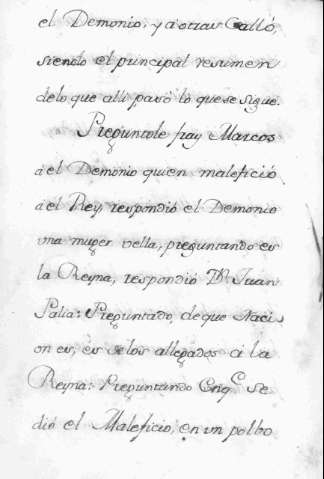 el Demonio, y a otras Calló,
siendo el principal resumen
delo que alli pasó lo que se sigue.
Preguntole fray Marcos
a el Demonio quien malefició
a el Rey respondió el Demonio
una muger vella, preguntando es
la Reyna, respondió Dn. Juan
Palia: Preguntado, de que Naci
on es, es de los allegados a la
Reyna: Preguntando Enq.e se
dió el Maleficio, en un polbo